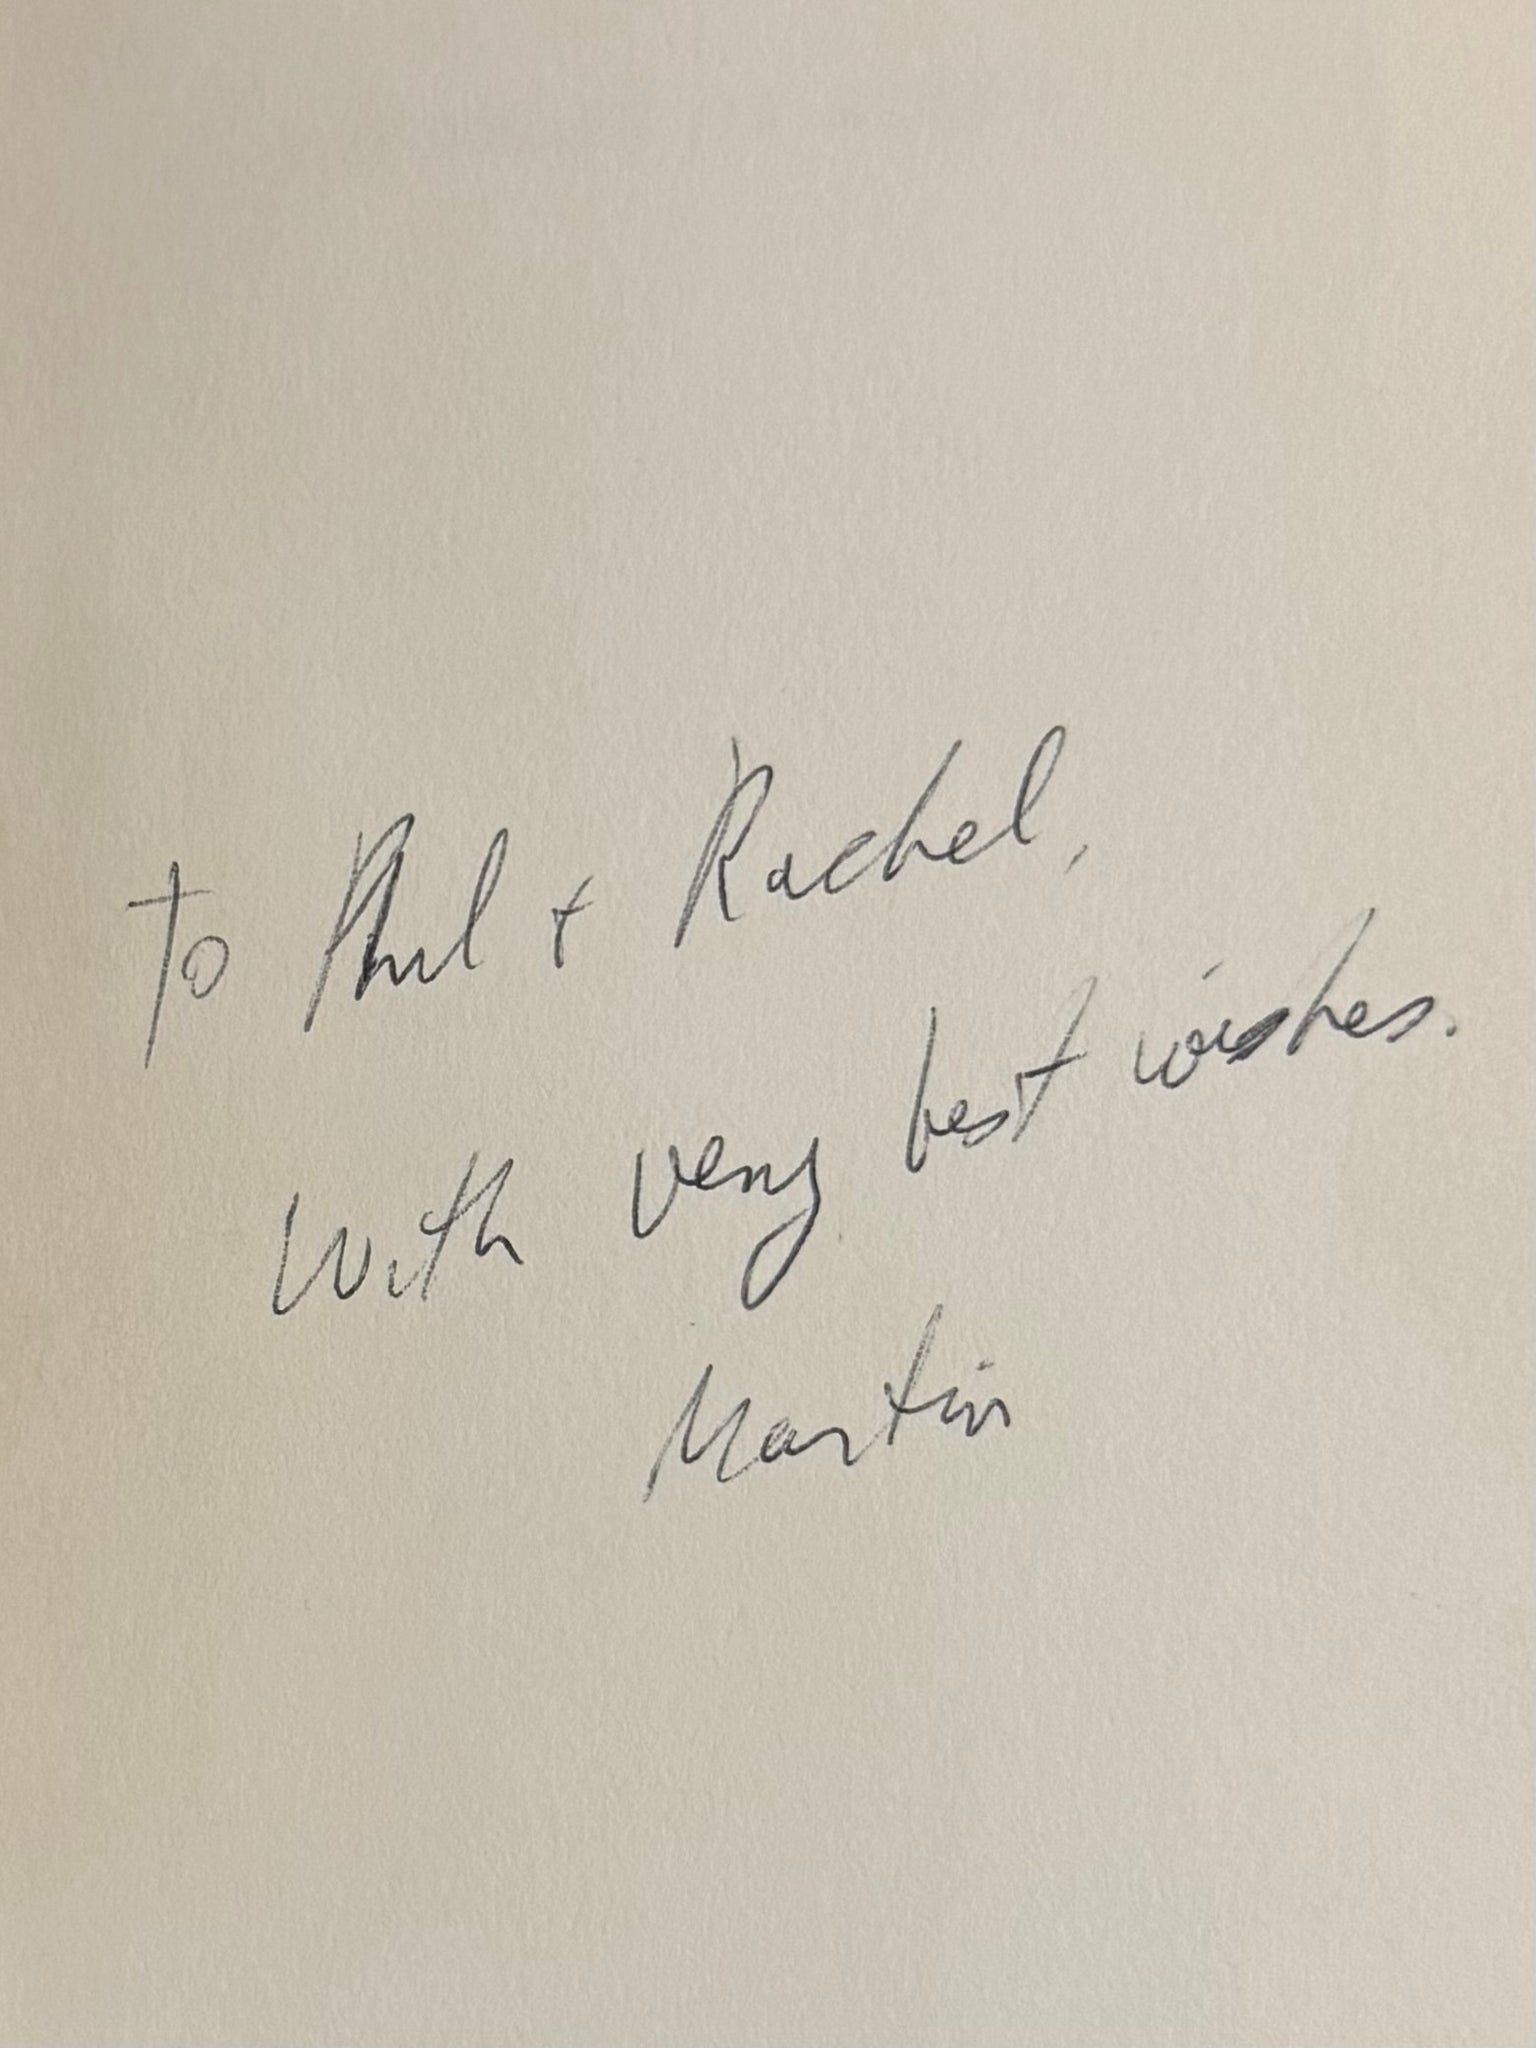 To Phil + Rachel,
With very best wishes.
Martin